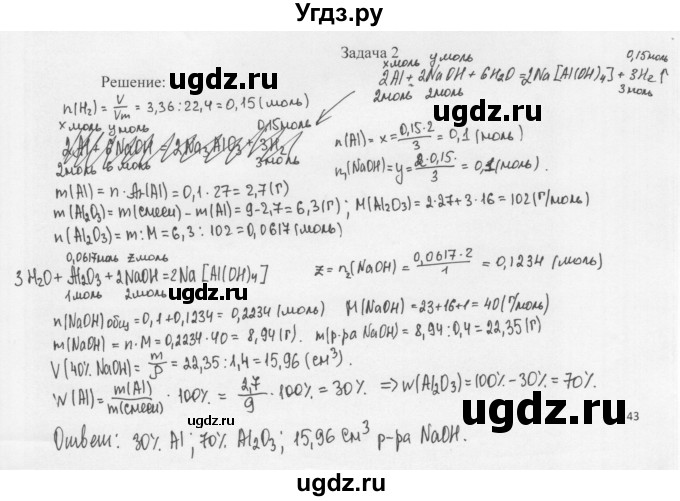 Угдз.ру
Задача 2
Решение:
x моль y моль 0,15 моль
2Al + 2NaOH + 6H₂O = 2Na[Al(OH)₄] + 3H₂↑
2моль 2моль 3 моль
n(H₂) = V/Vm = 3,36 : 22,4 = 0,15 (моль)
x моль y моль 0,15 моль
2Al + 6NaOH = 2Na₃AlO₃ + 3H₂
2моль 6 моль 3 моль
n(Al) = x = 0,15·2/3 = 0,1 (моль)
n₁(NaOH) = y = 2·0,15/3 = 0,1 (моль).
m(Al) = n · Ar(Al) = 0,1 · 27 = 2,7 (г)
m(Al₂O₃) = m(смеси) − m(Al) = 9 − 2,7 = 6,3 (г); M(Al₂O₃) = 2·27 + 3·16 = 102 (г/моль)
n(Al₂O₃) = m : M = 6,3 : 102 = 0,0617 (моль)
0,0617 моль z моль
3H₂O + Al₂O₃ + 2NaOH = 2Na[Al(OH)₄]
1 моль 2 моль
z = n₂(NaOH) = 0,0617·2/1 = 0,1234 (моль)
n(NaOH) общ = 0,1 + 0,1234 = 0,2234 (моль) M(NaOH) = 23+16+1 = 40 (г/моль)
m(NaOH) = n · M = 0,2234 · 40 = 8,94 (г). m(р-ра NaOH) = 8,94 : 0,4 = 22,35 (г)
V(40% NaOH) = m/ρ = 22,35 : 1,4 = 15,96 (см³).
W(Al) = m(Al)/m(смеси) · 100% = 2,7/9 · 100% = 30% ⇒ w(Al₂O₃) = 100% − 30% = 70%.
Ответ: 30% Al; 70% Al₂O₃; 15,96 см³ р-ра NaOH.
43
ugdz.ru
ugdz.ru
ugdz.ru
ugdz.ru
ugdz.ru
ugdz.ru
ugdz.ru